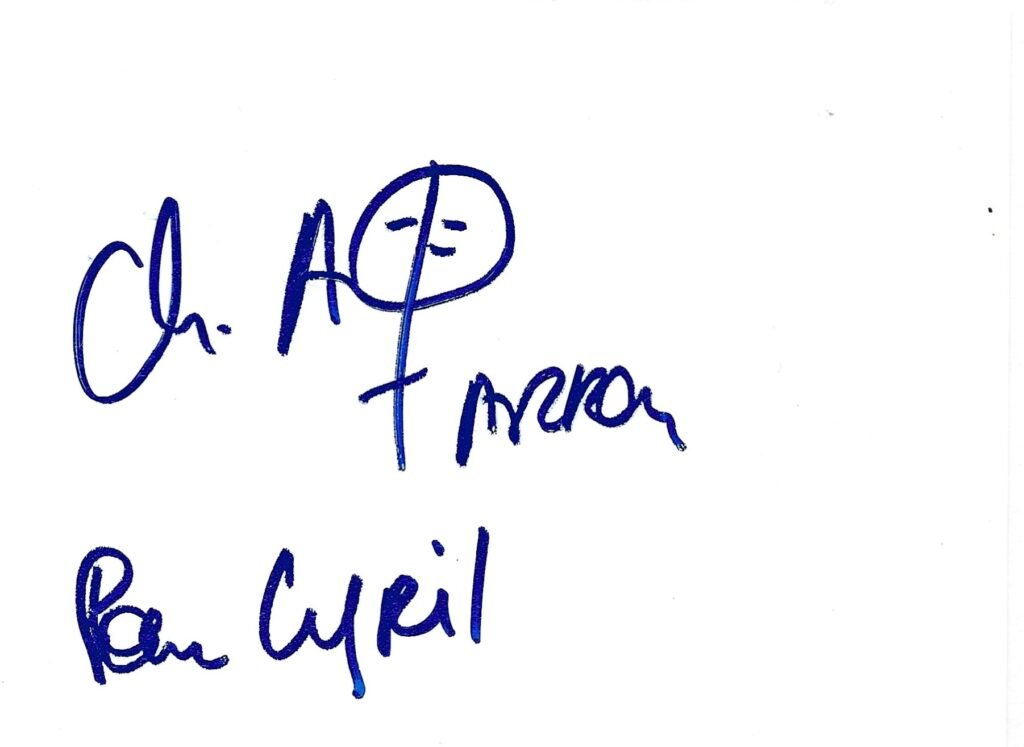 Ch. A
ARRON
Pour Cyril